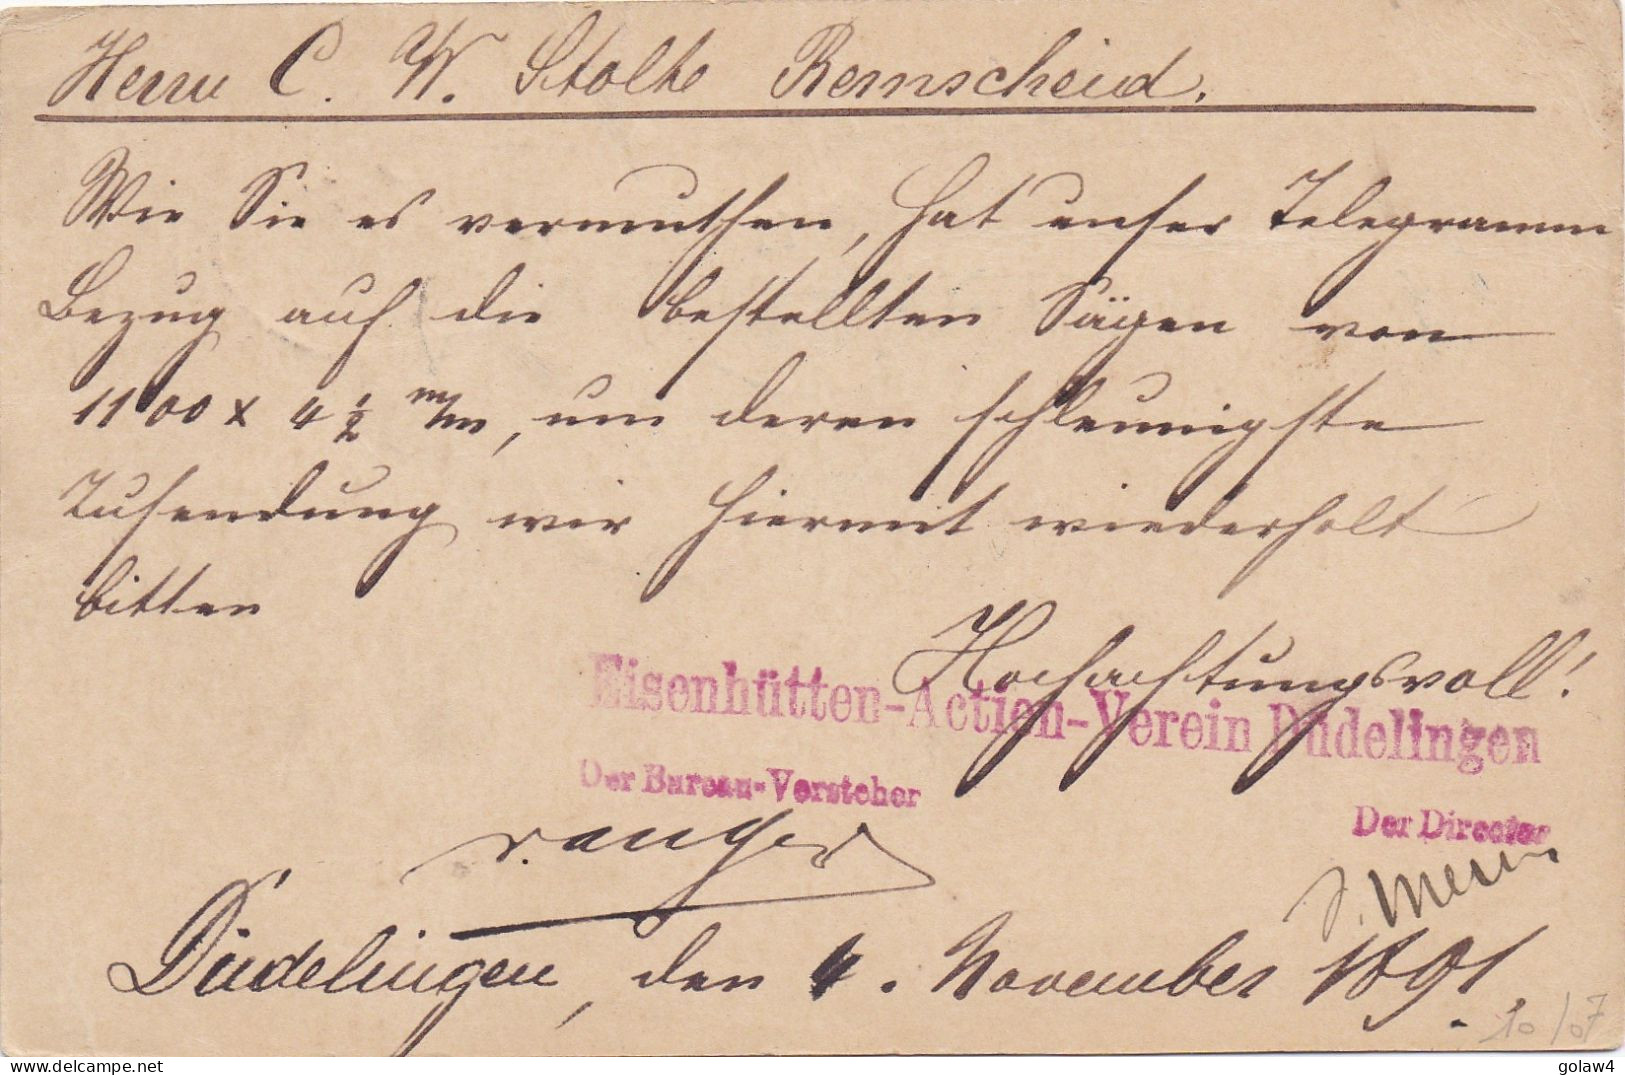 Herrn C. W. Stolte Remscheid.
Wie Sie es vermuthen, hat unser Telegramm
Bezug auf die bestellten Sägen von
1100 x 4 1/2 m/m, um deren schleunigste
Zusendung wir hiermit wiederholt
bitten
Hochachtungsvoll!
Eisenhütten-Actien-Verein Düdelingen
Der Bureau-Vorsteher
Der Director
Düdelingen, den 4. November 1891.
10/07
golaw4